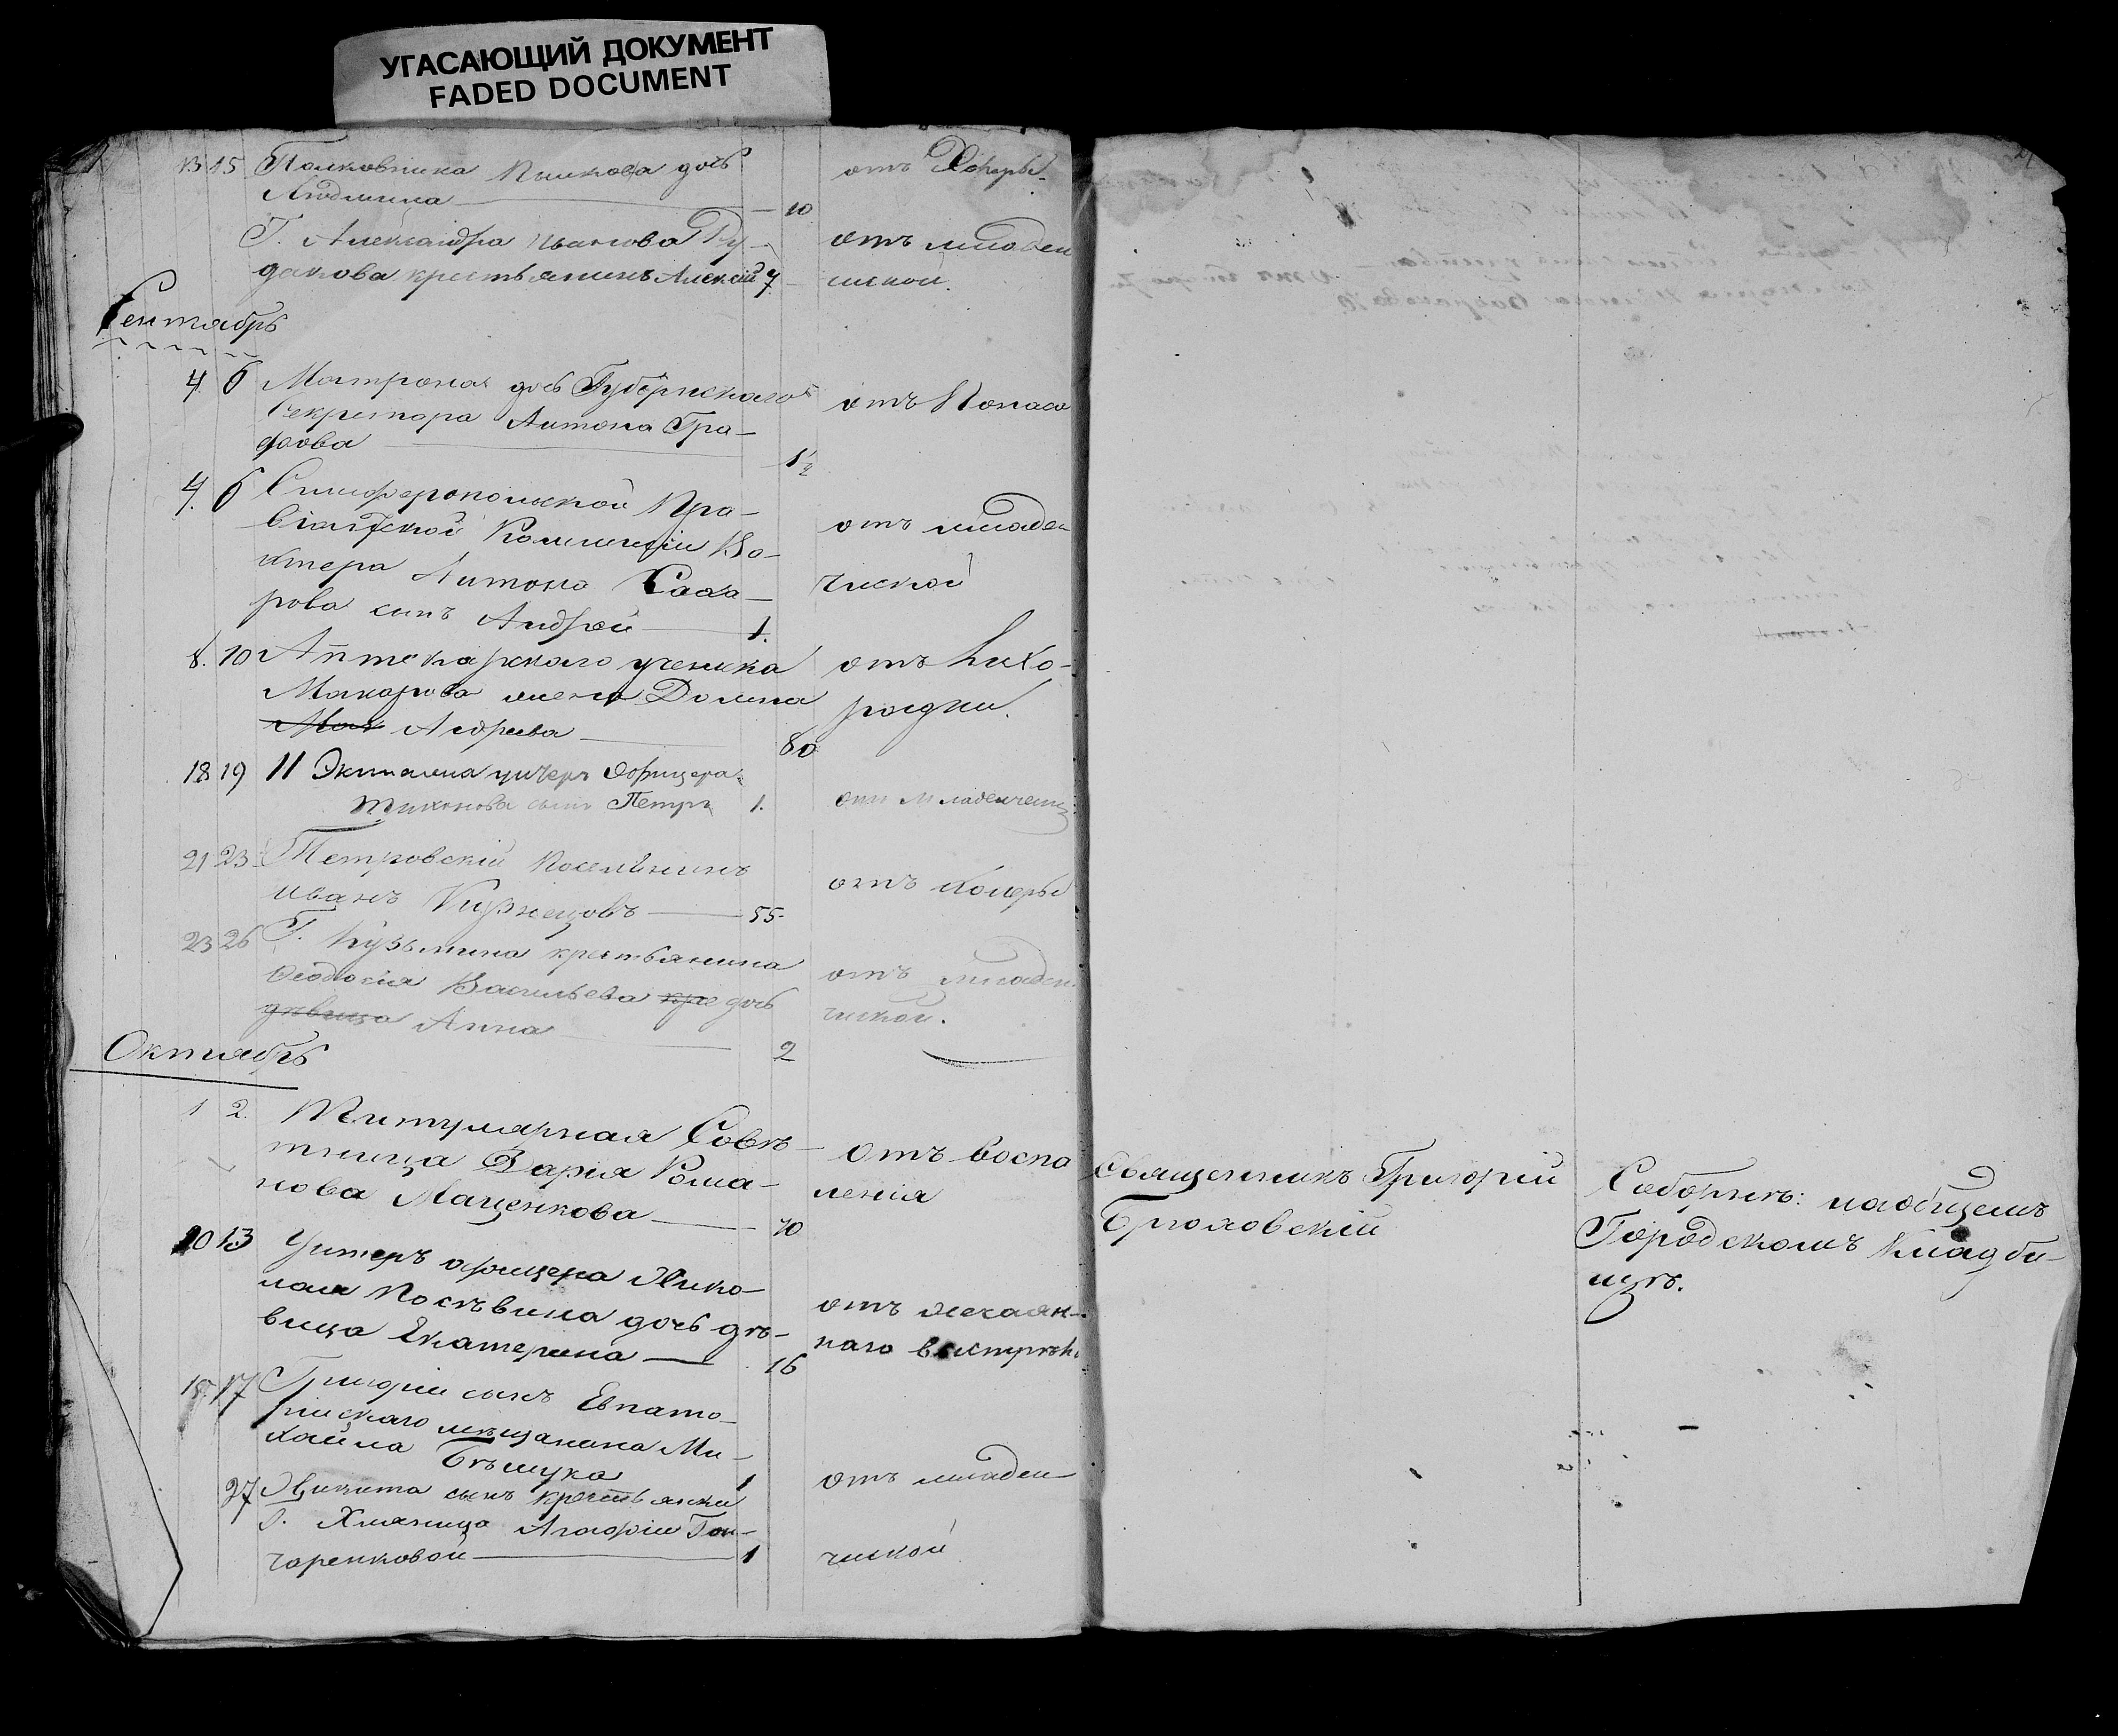 УГАСАЮЩИЙ ДОКУМЕНТ
FADED DOCUMENT
13 15 Полковника дочь
Людмила 10
отъ Холеры
Г. Александра Иванова
крестьянинъ Алексѣй 7
отъ младен
ческой.
Сентябрь
4 6 Матрона дочь Губернскаго
Секретара Антона Гра-
фова 1½
отъ Поноса
4. 6 Симферопольской Про-
віантской Коммисіи Во-
хтера Антона Саха-
рова сынъ Андрей 1.
отъ младен
ческой
8. 10 Аптекарскаго ученика
Макарова жена Домна
Андреева 80
отъ Лихо-
радки.
18 19 11 Экипажа унтеръ Офицера
Тихонова сынъ Петръ 1.
отъ младенческ
21 23 Петровскій Поселянинъ
Иванъ Кузнецовъ 55
отъ Холеры
23 26 Г. Кузьмина крестьянина
Феодосія Васильева дочь
дѣвица Анна 2
отъ младен
ческой.
Октябрь
1 2. Титулярная Совѣ-
тница Дарія Рома-
нова Маценкова 70
отъ воспа
ленія
Священникъ Григорій
Брюховскій
Соборнѣ: на общемъ
Городскомъ Кладби-
щѣ.
10 13 Унтеръ офицера Нико-
лая Посѣвина дочь дѣ-
вица Екатерина 16
отъ нечаян-
наго выстрѣл
15. 17 Григорій сынъ Евпато-
рійскаго мѣщанина Ми-
хайла 1
27 Никита сынъ крестьянки
Г. Гон-
чаренковой 1
отъ младен-
ческой